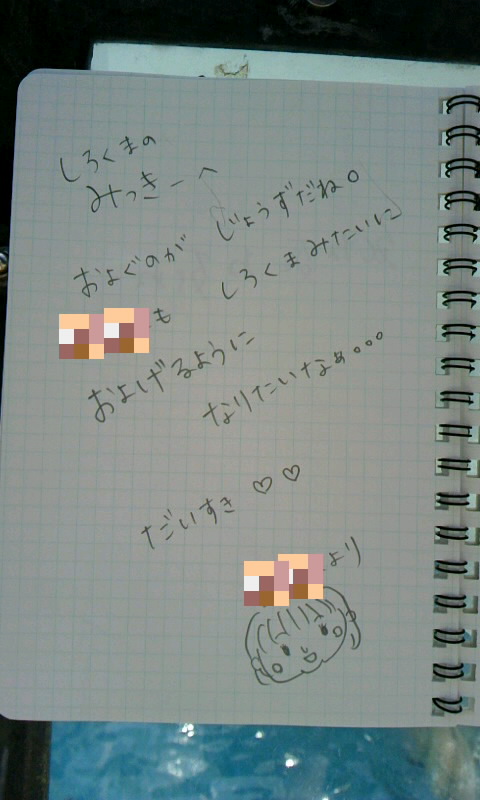 しろくまの
みっきーへ
およぐのが じょうずだね。
も しろくまみたいに
およげるように なりたいなぁ。。。
だいすき♡♡
より